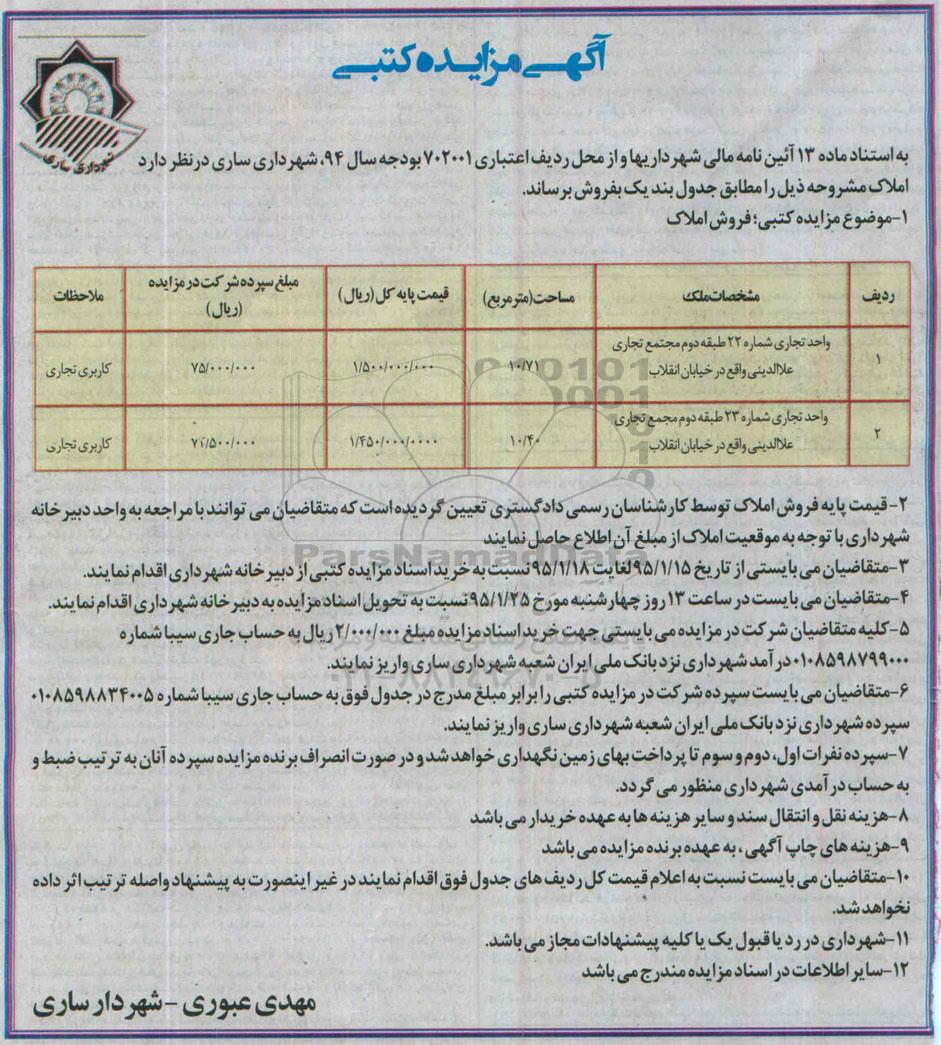 آگهی مزایده کتبی
شهرداری ساری
به استناد ماده ۱۳ آئین نامه مالی شهرداریها و از محل ردیف اعتباری ۷۰۲۰۰۱ بودجه سال ۹۴، شهرداری ساری در نظر دارد
املاک مشروحه ذیل را مطابق جدول بند یک بفروش برساند.
۱-موضوع مزایده کتبی؛ فروش املاک
ردیف | مشخصات ملک | مساحت(مترمربع) | قیمت پایه کل (ریال) | مبلغ سپرده شرکت در مزایده (ریال) | ملاحظات
۱ | واحد تجاری شماره ۲۲ طبقه دوم مجتمع تجاری علاالدینی واقع در خیابان انقلاب | ۱۰/۷۱ | ۱/۵۰۰/۰۰۰/۰۰۰ | ۷۵/۰۰۰/۰۰۰ | کاربری تجاری
۲ | واحد تجاری شماره ۲۳ طبقه دوم مجمع تجاری علاالدینی واقع در خیابان انقلاب | ۱۰/۴۰ | ۱/۴۵۰/۰۰۰/۰۰۰۰ | ۷۲/۵۰۰/۰۰۰ | کاربری تجاری
۲- قیمت پایه فروش املاک توسط کارشناسان رسمی دادگستری تعیین گردیده است که متقاضیان می توانند با مراجعه به واحد دبیرخانه
شهرداری با توجه به موقعیت املاک از مبلغ آن اطلاع حاصل نمایند
ParsNamadData
۳-متقاضیان می بایستی از تاریخ ۹۵/۱/۱۵ لغایت ۹۵/۱/۱۸ نسبت به خرید اسناد مزایده کتبی از دبیرخانه شهرداری اقدام نمایند.
۴-متقاضیان می بایست در ساعت ۱۳ روز چهارشنبه مورخ ۹۵/۱/۲۵ نسبت به تحویل اسناد مزایده به دبیرخانه شهرداری اقدام نمایند.
۵-کلیه متقاضیان شرکت در مزایده می بایستی جهت خرید اسناد مزایده مبلغ ۲/۰۰۰/۰۰۰ ریال به حساب جاری سیبا شماره
۰۱۰۸۵۹۸۷۹۹۰۰۰ درآمد شهرداری نزد بانک ملی ایران شعبه شهرداری ساری واریز نمایند.
۶-متقاضیان می بایست سپرده شرکت در مزایده کتبی را برابر مبلغ مدرج در جدول فوق به حساب جاری سیبا شماره ۰۱۰۸۵۹۸۸۳۴۰۰۵
سپرده شهرداری نزد بانک ملی ایران شعبه شهرداری ساری واریز نمایند.
۷-سپرده نفرات اول، دوم و سوم تا پرداخت بهای زمین نگهداری خواهد شد و در صورت انصراف برنده مزایده سپرده آنان به ترتیب ضبط و
به حساب درآمدی شهرداری منظور می گردد.
۸-هزینه نقل و انتقال سند و سایر هزینه ها به عهده خریدار می باشد
۹-هزینه های چاپ آگهی، به عهده برنده مزایده می باشد
۱۰-متقاضیان می بایست نسبت به اعلام قیمت کل ردیف های جدول فوق اقدام نمایند در غیر اینصورت به پیشنهاد واصله ترتیب اثر داده
نخواهد شد.
۱۱-شهرداری در رد یا قبول یک یا کلیه پیشنهادات مجاز می باشد.
۱۲-سایر اطلاعات در اسناد مزایده مندرج می باشد
مهدی عبوری - شهردار ساری